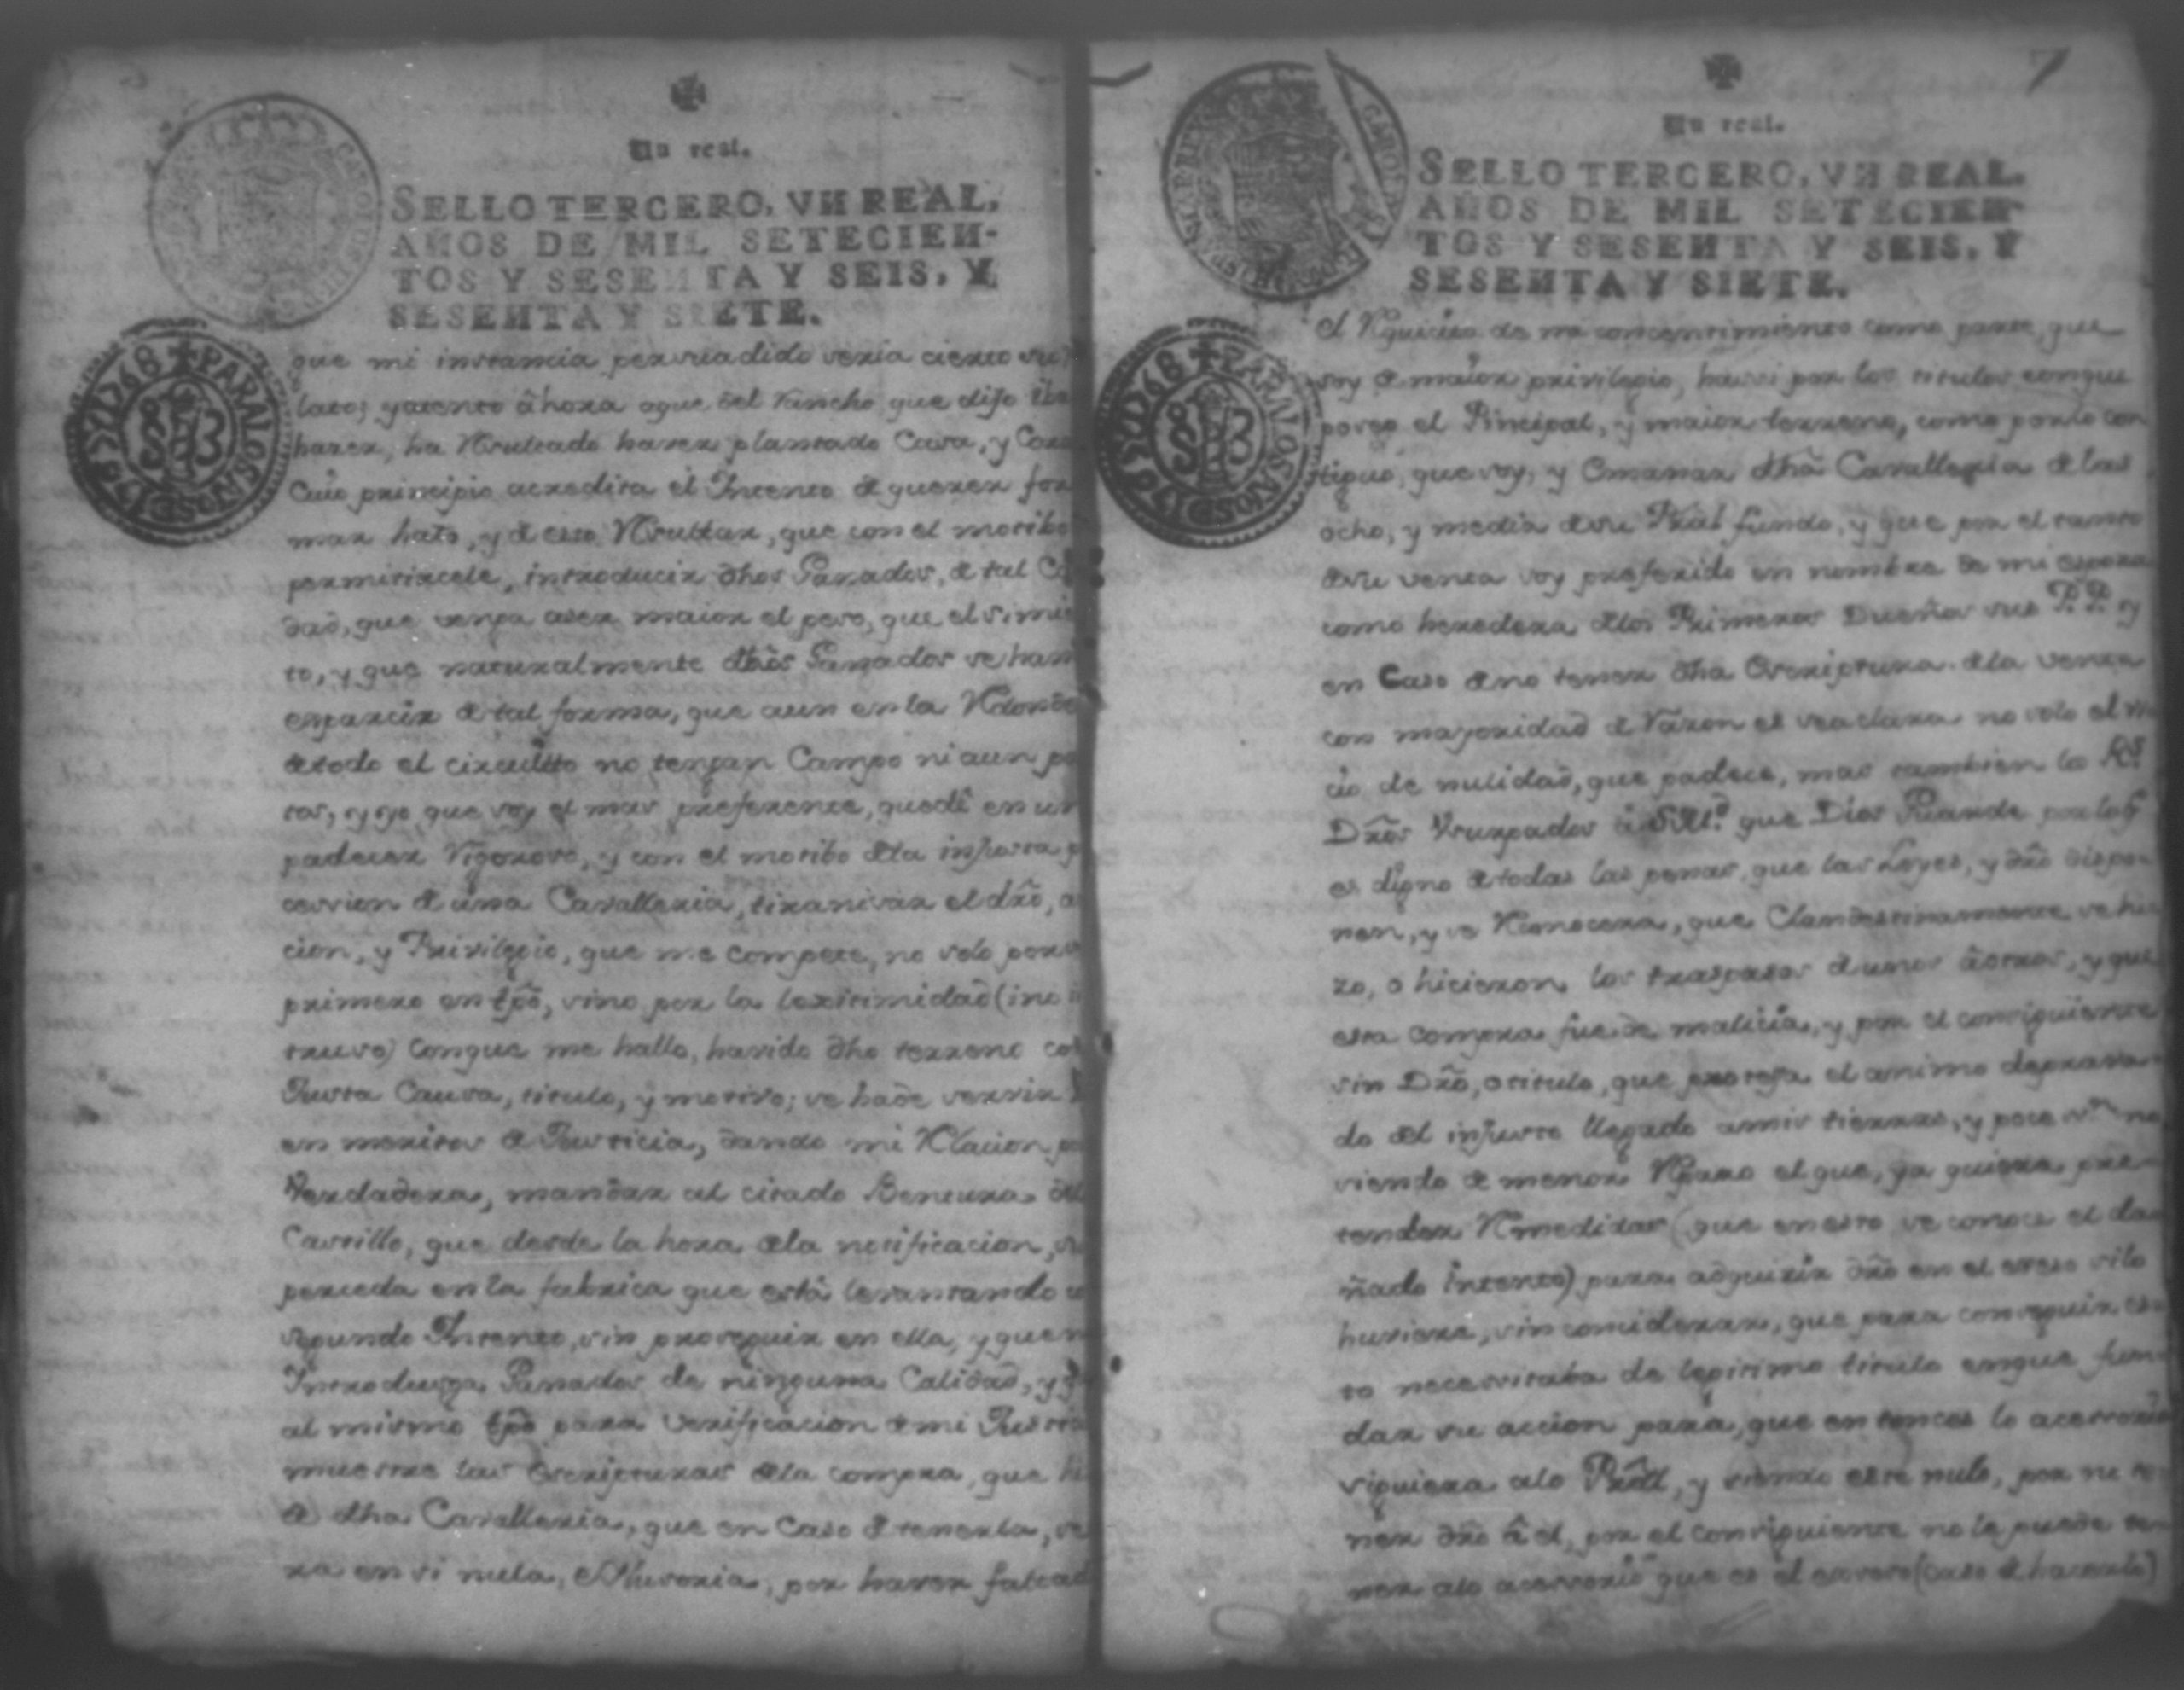 Un real.
SELLO TERCERO, VN REAL,
AÑOS DE MIL SETECIEN-
TOS Y SESENTA Y SEIS, Y
SESENTA Y SIETE.
PARA LOS AÑOS D 1768
que mi instancia persuadido seria cierto su
lato; y atento âhora aque del Rancho que dijo iba
hazer, ha Resultado haver plantado Casa, y
Cuio principio acredita el Intento de querer for
mar hato, y de esso Resultar, que con el motibo
permitirsele, introducir dhos Ganados, de tal
dad, que venga aser maior el peso, que el
to, y que naturalmente dhôs Ganados se han
esparcir de tal forma, que aun en la
de todo el circuitto no tengan Campo ni aun
tos, y yo que soy el mas preferente, quedê en un
padecer Rigoroso, y con el motibo de la injusta
cession de una Cavalleria, tiranisar el drô,
cion, y Privilegio, que me compete, no solo por
primero en tpô, sino por la lexitimidad (
) Conque me hallo, havido dho terreno
Justa Causa, titulo, y motivo; se hade servir
en meritos de Justicia, dando mi Relacion
Verdadera, mandar al citado Bentura del
Castillo, que desde la hora de la notificacion,
en la fabrica que estâ levantando
segundo Intento, sin proseguir en ella, y que
Introdusga Ganados de ninguna Calidad, y
al mismo tpô para Verificacion de mi
muestre las Escripturas de la compra, que
de dha Cavalleria, que en Caso de tenerla,
ra en si nula, e Ylusoria, por haver
7
Un real.
SELLO TERCERO, VN REAL.
AÑOS DE MIL SETECIEN-
TOS Y SESENTA Y SEIS, Y
SESENTA Y SIETE.
PARA LOS AÑOS D 1768
el Requicito de mi concentimiento como parte, que
soy de maior privilegio, hassi por los titulos conque
poseo el Principal, y maior terreno, como por lo con
tiguo, que soy, y Emanar dhâ Cavalleria de las
ocho, y media de su fundo, y que por el tanto
de su venta soy preferido en nombre de mi esposa
como heredera de los Primeros Dueños sus P.P. y
en Caso de no tener dha Escriptura de la venta
con mayoridad de Razon es vea clara no solo el
cio de nulidad, que padece, mas tambien los Rs
Drôs Vsurpados â S.M.d que Dios Guarde por lo q
es digno de todas las penas, que las Leyes, y drô dispo-
nen, y se Reconocera, que Clandestinamente se hi
zo, o hicieron los traspasos de unos âotros, y que
esta compra fue de malicia, y por el consiguiente
sin Drô, o titulo, que proteja el animo deprava-
do del injusto llegado amis tierras, y
siendo de menor Reparo el que, ya quiera pre-
tender Remedidas (que en esto se conoce el da
ñado intento) para adquirir drô en el si lo
huviere, sin conciderar, que para conseguir es
to necessitaba de legitimo titulo enque fun-
dar su accion para, que entonces lo acessorio
siguiera alo Prâll, y siendo este nulo, por no te
ner drô â el, por el consiguiente no le puede te-
ner alo acessorio que es el (caso de hacerlo)